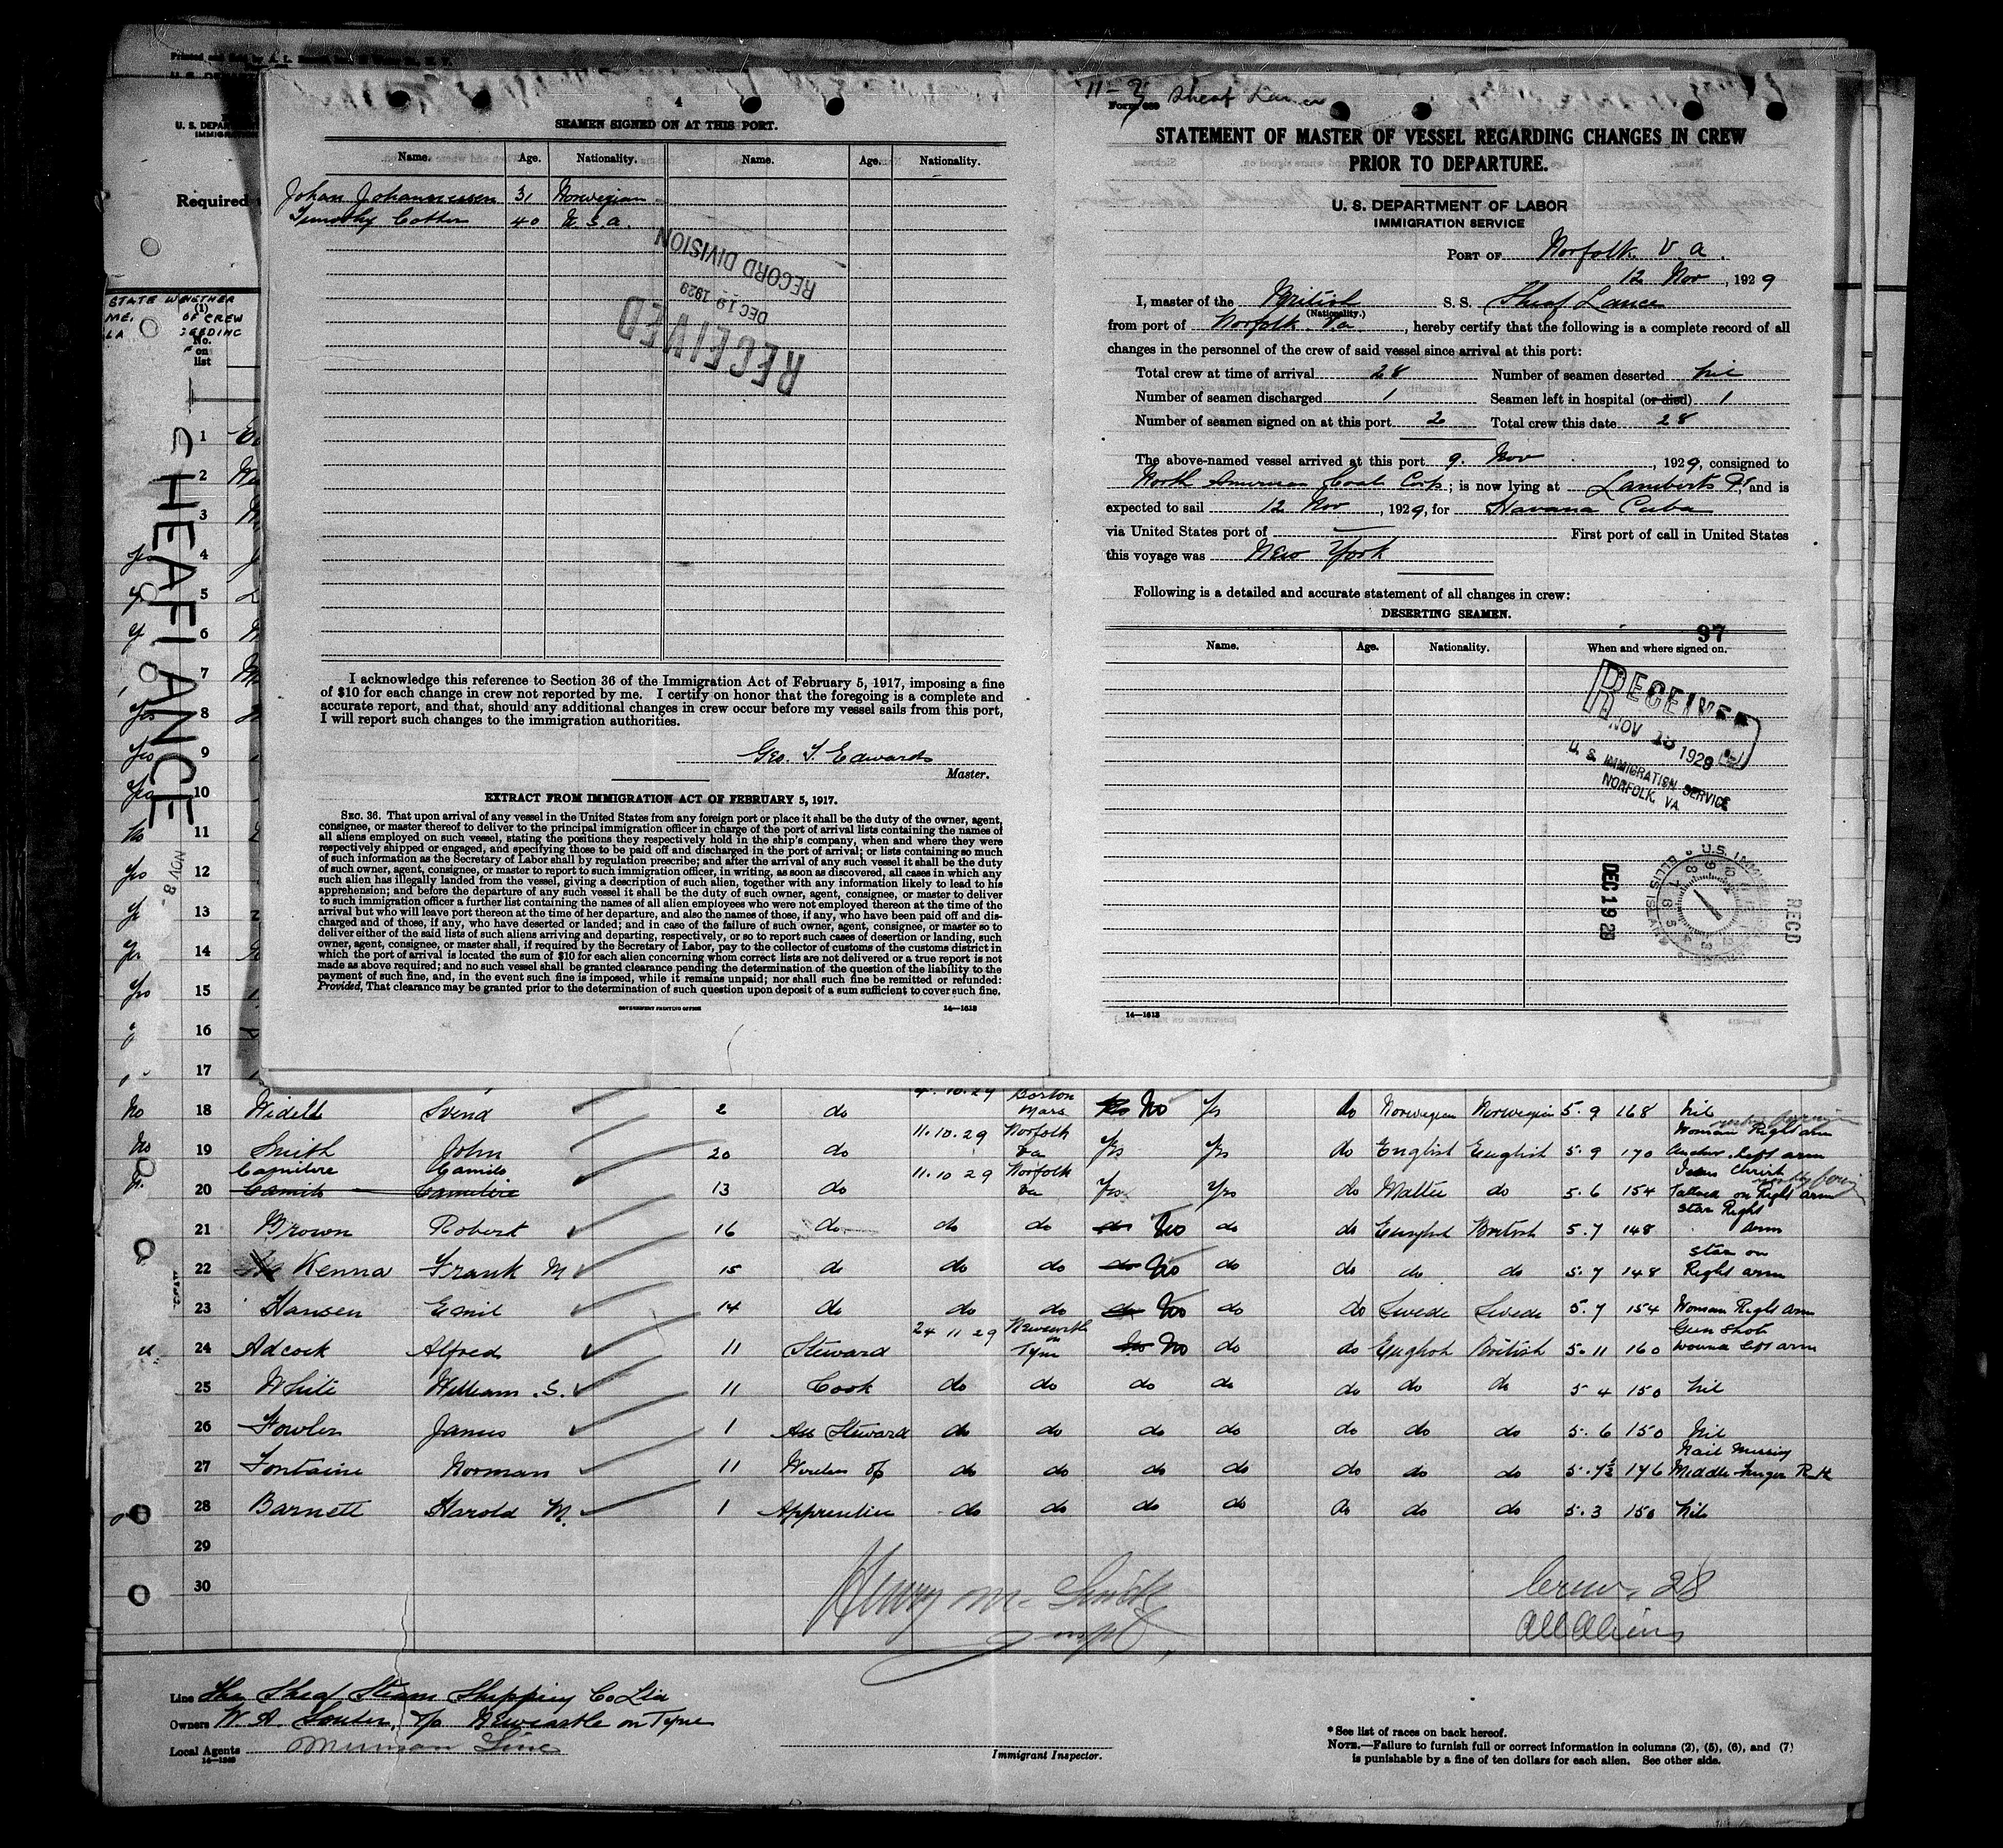 4
SEAMEN SIGNED ON AT THIS PORT.
Name. Age. Nationality. Name. Age. Nationality.
Johan Johannessen 31 Norwegian
Timothy Cotter 40 U.S.A.
RECEIVED
DEC 19 1929
RECORD DIVISION
I acknowledge this reference to Section 36 of the Immigration Act of February 5, 1917, imposing a fine
of $10 for each change in crew not reported by me. I certify on honor that the foregoing is a complete and
accurate report, and that, should any additional changes in crew occur before my vessel sails from this port,
I will report such changes to the immigration authorities.
Geo. T. Edwards
Master.
EXTRACT FROM IMMIGRATION ACT OF FEBRUARY 5, 1917.
SEC. 36. That upon arrival of any vessel in the United States from any foreign port or place it shall be the duty of the owner, agent,
consignee, or master thereof to deliver to the principal immigration officer in charge of the port of arrival lists containing the names of
all aliens employed on such vessel, stating the positions they respectively hold in the ship's company, when and where they were
respectively shipped or engaged, and specifying those to be paid off and discharged in the port of arrival; or lists containing so much
of such information as the Secretary of Labor shall by regulation prescribe; and after the arrival of any such vessel it shall be the duty
of such owner, agent, consignee, or master to report to such immigration officer, in writing, as soon as discovered, all cases in which any
such alien has illegally landed from the vessel, giving a description of such alien, together with any information likely to lead to his
apprehension; and before the departure of any such vessel it shall be the duty of such owner, agent, consignee, or master to deliver
to such immigration officer a further list containing the names of all alien employees who were not employed thereon at the time of the
arrival but who will leave port thereon at the time of her departure, and also the names of those, if any, who have been paid off and dis-
charged and of those, if any, who have deserted or landed; and in case of the failure of such owner, agent, consignee, or master so to
deliver either of the said lists of such aliens arriving and departing, respectively, or so to report such cases of desertion or landing, such
owner, agent, consignee, or master shall, if required by the Secretary of Labor, pay to the collector of customs of the customs district in
which the port of arrival is located the sum of $10 for each alien concerning whom correct lists are not delivered or a true report is not
made as above required; and no such vessel shall be granted clearance pending the determination of the question of the liability to the
payment of such fine, and, in the event such fine is imposed, while it remains unpaid; nor shall such fine be remitted or refunded:
Provided, That clearance may be granted prior to the determination of such question upon deposit of a sum sufficient to cover such fine.
GOVERNMENT PRINTING OFFICE 14—1613
Sheaf Lance
STATEMENT OF MASTER OF VESSEL REGARDING CHANGES IN CREW
PRIOR TO DEPARTURE.
U. S. DEPARTMENT OF LABOR
IMMIGRATION SERVICE
PORT OF Norfolk Va.
12 Nov, 1929
I, master of the British S. S. Sheaf Lance
(Nationality.)
from port of Norfolk Va., hereby certify that the following is a complete record of all
changes in the personnel of the crew of said vessel since arrival at this port:
Total crew at time of arrival 28 Number of seamen deserted nil
Number of seamen discharged 1 Seamen left in hospital (or died) 1
Number of seamen signed on at this port 2 Total crew this date 28
The above-named vessel arrived at this port 9. Nov, 1929, consigned to
North American Coal Corp; is now lying at Lamberts Pt, and is
expected to sail 12 Nov, 1929, for Havana Cuba
via United States port of First port of call in United States
this voyage was New York
Following is a detailed and accurate statement of all changes in crew:
DESERTING SEAMEN.
97
Name. Age. Nationality. When and where signed on.
RECEIVED
NOV 1929
U. S. IMMIGRATION SERVICE
NORFOLK, VA.
DEC 19 29
RECD
14—1613
Required
SHEAF LANCE
NOV 8
No.
on
list
1
2
3
4
5
6
7
8
9
10
11
12
13
14
15
16
17
Boston
18 Widell Svend 2 do Mass No Yes do Norwegian Norwegian 5.9 168 Nil
11.10.29 Norfolk Woman Right arm
19 Smith John 20 do Va Yes Yes do English English 5.9 170 Anchor left arm
Camilere Camilo 11.10 29 Norfolk Christ
20 Camilo Camilere 13 do Va Yes Yes do Maltee do 5.6 154 Tattoed on Right arm
Star Right
21 Brown Robert 16 do do do do No do do English British 5.7 148 arm
Star on
22 Kenna Frank M 15 do do do do No do do do do 5.7 148 Right arm
23 Hansen Emil 14 do do do do No do do Swede Swede 5.7 154 Woman Right arm
24 11 29 Newcastle on Gun Shot
24 Adcock Alfred 11 Steward Tyne No do do English British 5.11 160 wound left arm
25 White William .S. 11 Cook do do do do do do do 5 4 150 Nil
26 Fowler James 1 Ass Steward do do do do do do do 5.6 150 Nil
Nail Missing
27 Fontaine Norman 11 Wireless Op do do do do do do do 5.7½ 146 Middle finger R H
28 Barnett Harold M. 1 Apprentice do do do do do do do 5.3 150 Nil
29
30
Crew, 28
All Aliens
Line The Sheaf Steam Shipping Co Ltd
Owners W. A. Souter, Newcastle on Tyne
Local Agents Munson Line
Immigrant Inspector.
* See list of races on back hereof.
NOTE.—Failure to furnish full or correct information in columns (2), (5), (6), and (7)
is punishable by a fine of ten dollars for each alien. See other side.